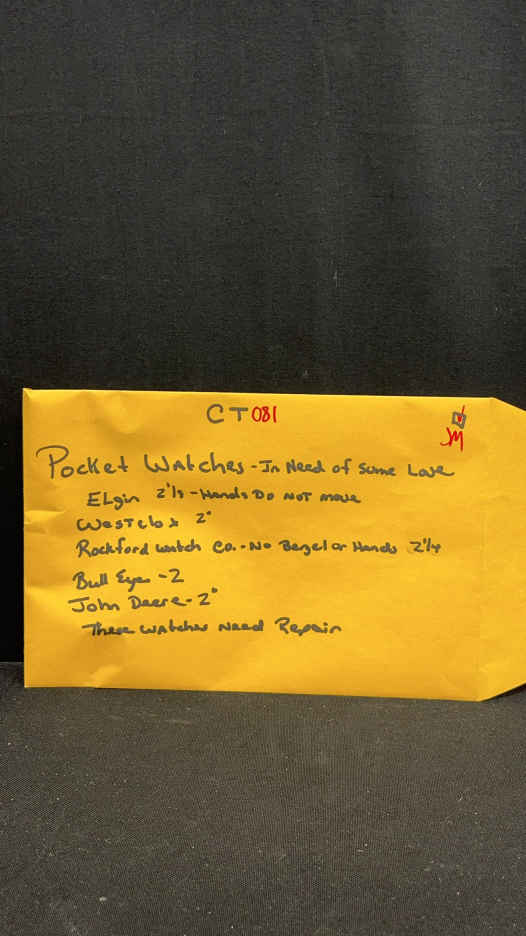 CT081
JM
Pocket Watches - In Need of Some Love
ELgin 2 1/3 - Hands Do Not move
Westclox 2"
Rockford Watch Co. - No Bezel or Hands 2 1/4
Bull Eye - 2
John Deere - 2"
These Watches Need Repair